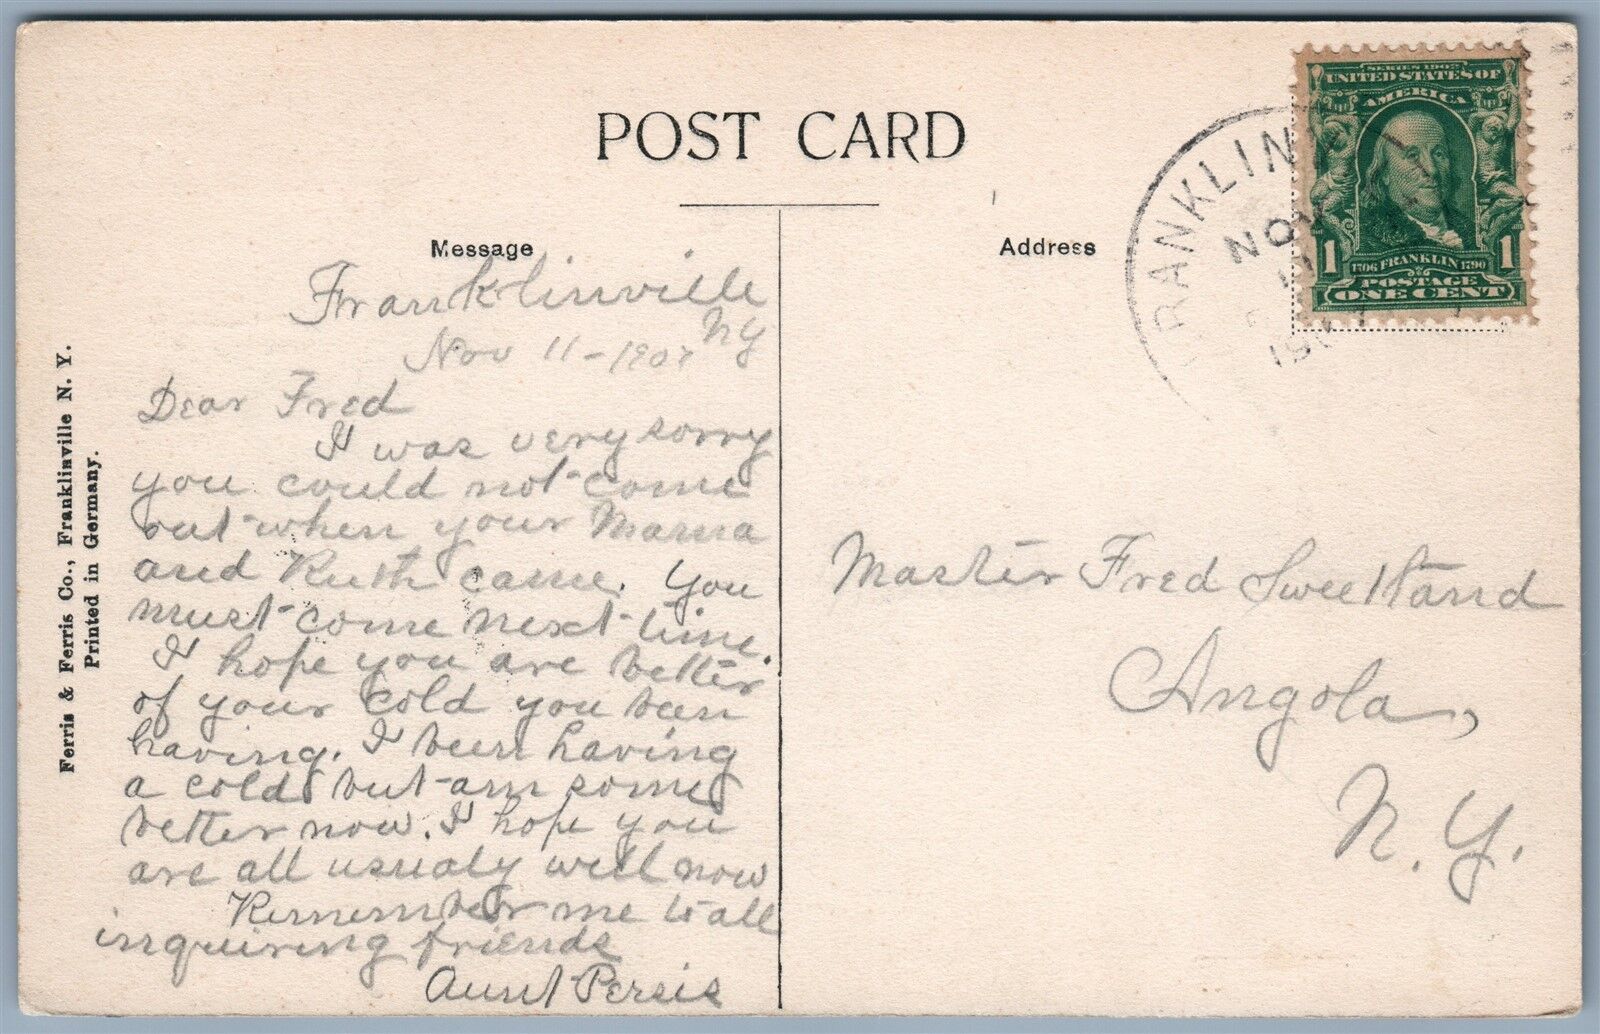 POST CARD
Message
Franklinville
NY
Nov 11-1907
Dear Fred
I was very sorry
you could not come
out when your Mama
and Ruth came. You
must come next time.
I hope you are better
of your cold you been
having. I been having
a cold but am some
better now. I hope you
are all usualy well now
Remember me to all
inquiring friends
Aunt Persis
Ferris & Ferris Co., Franklinville N. Y.
Printed in Germany.
Address
FRANKLIN
NOV
SERIES 1902
UNITED STATES OF
AMERICA
1 1
1706 FRANKLIN 1790
POSTAGE
ONE CENT
Master Fred Sweetland
Angola,
N. Y.